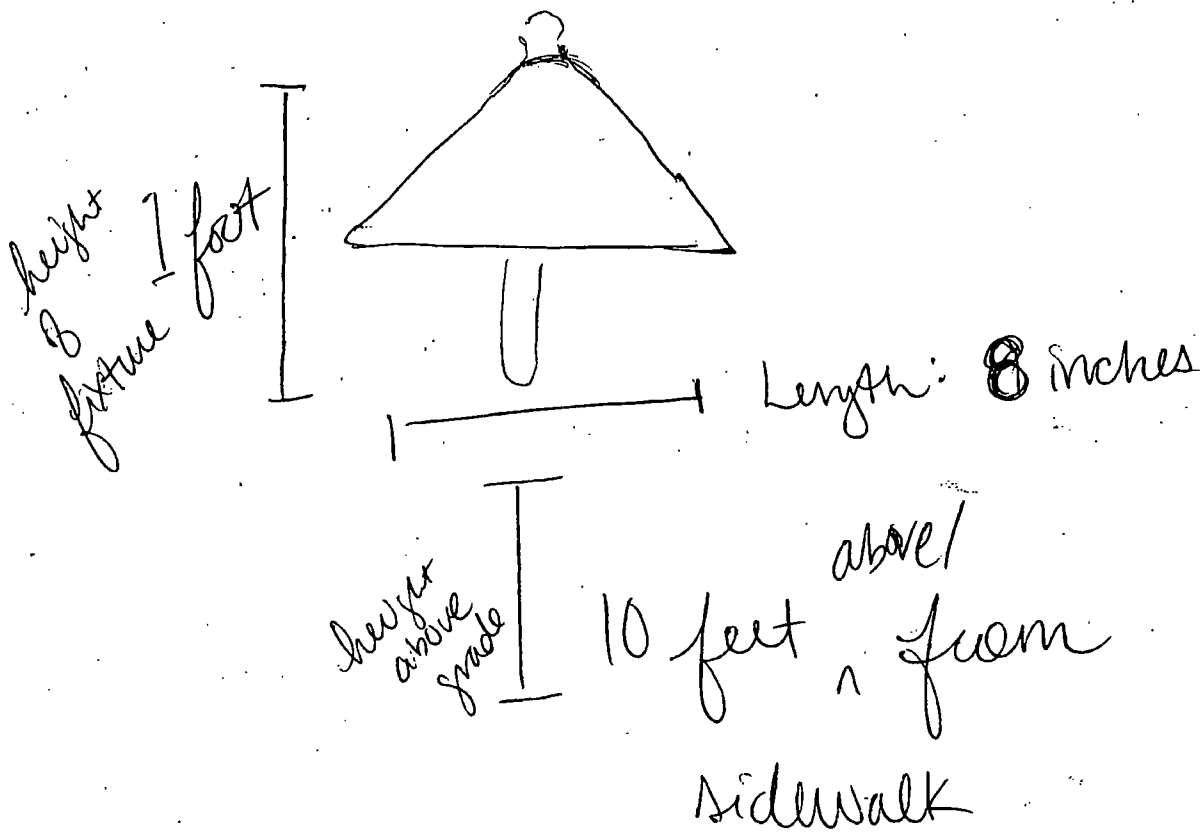 height
of
fixture
1 foot
Length: 8 inches
height
above
grade
above/
10 feet ^ from
sidewalk